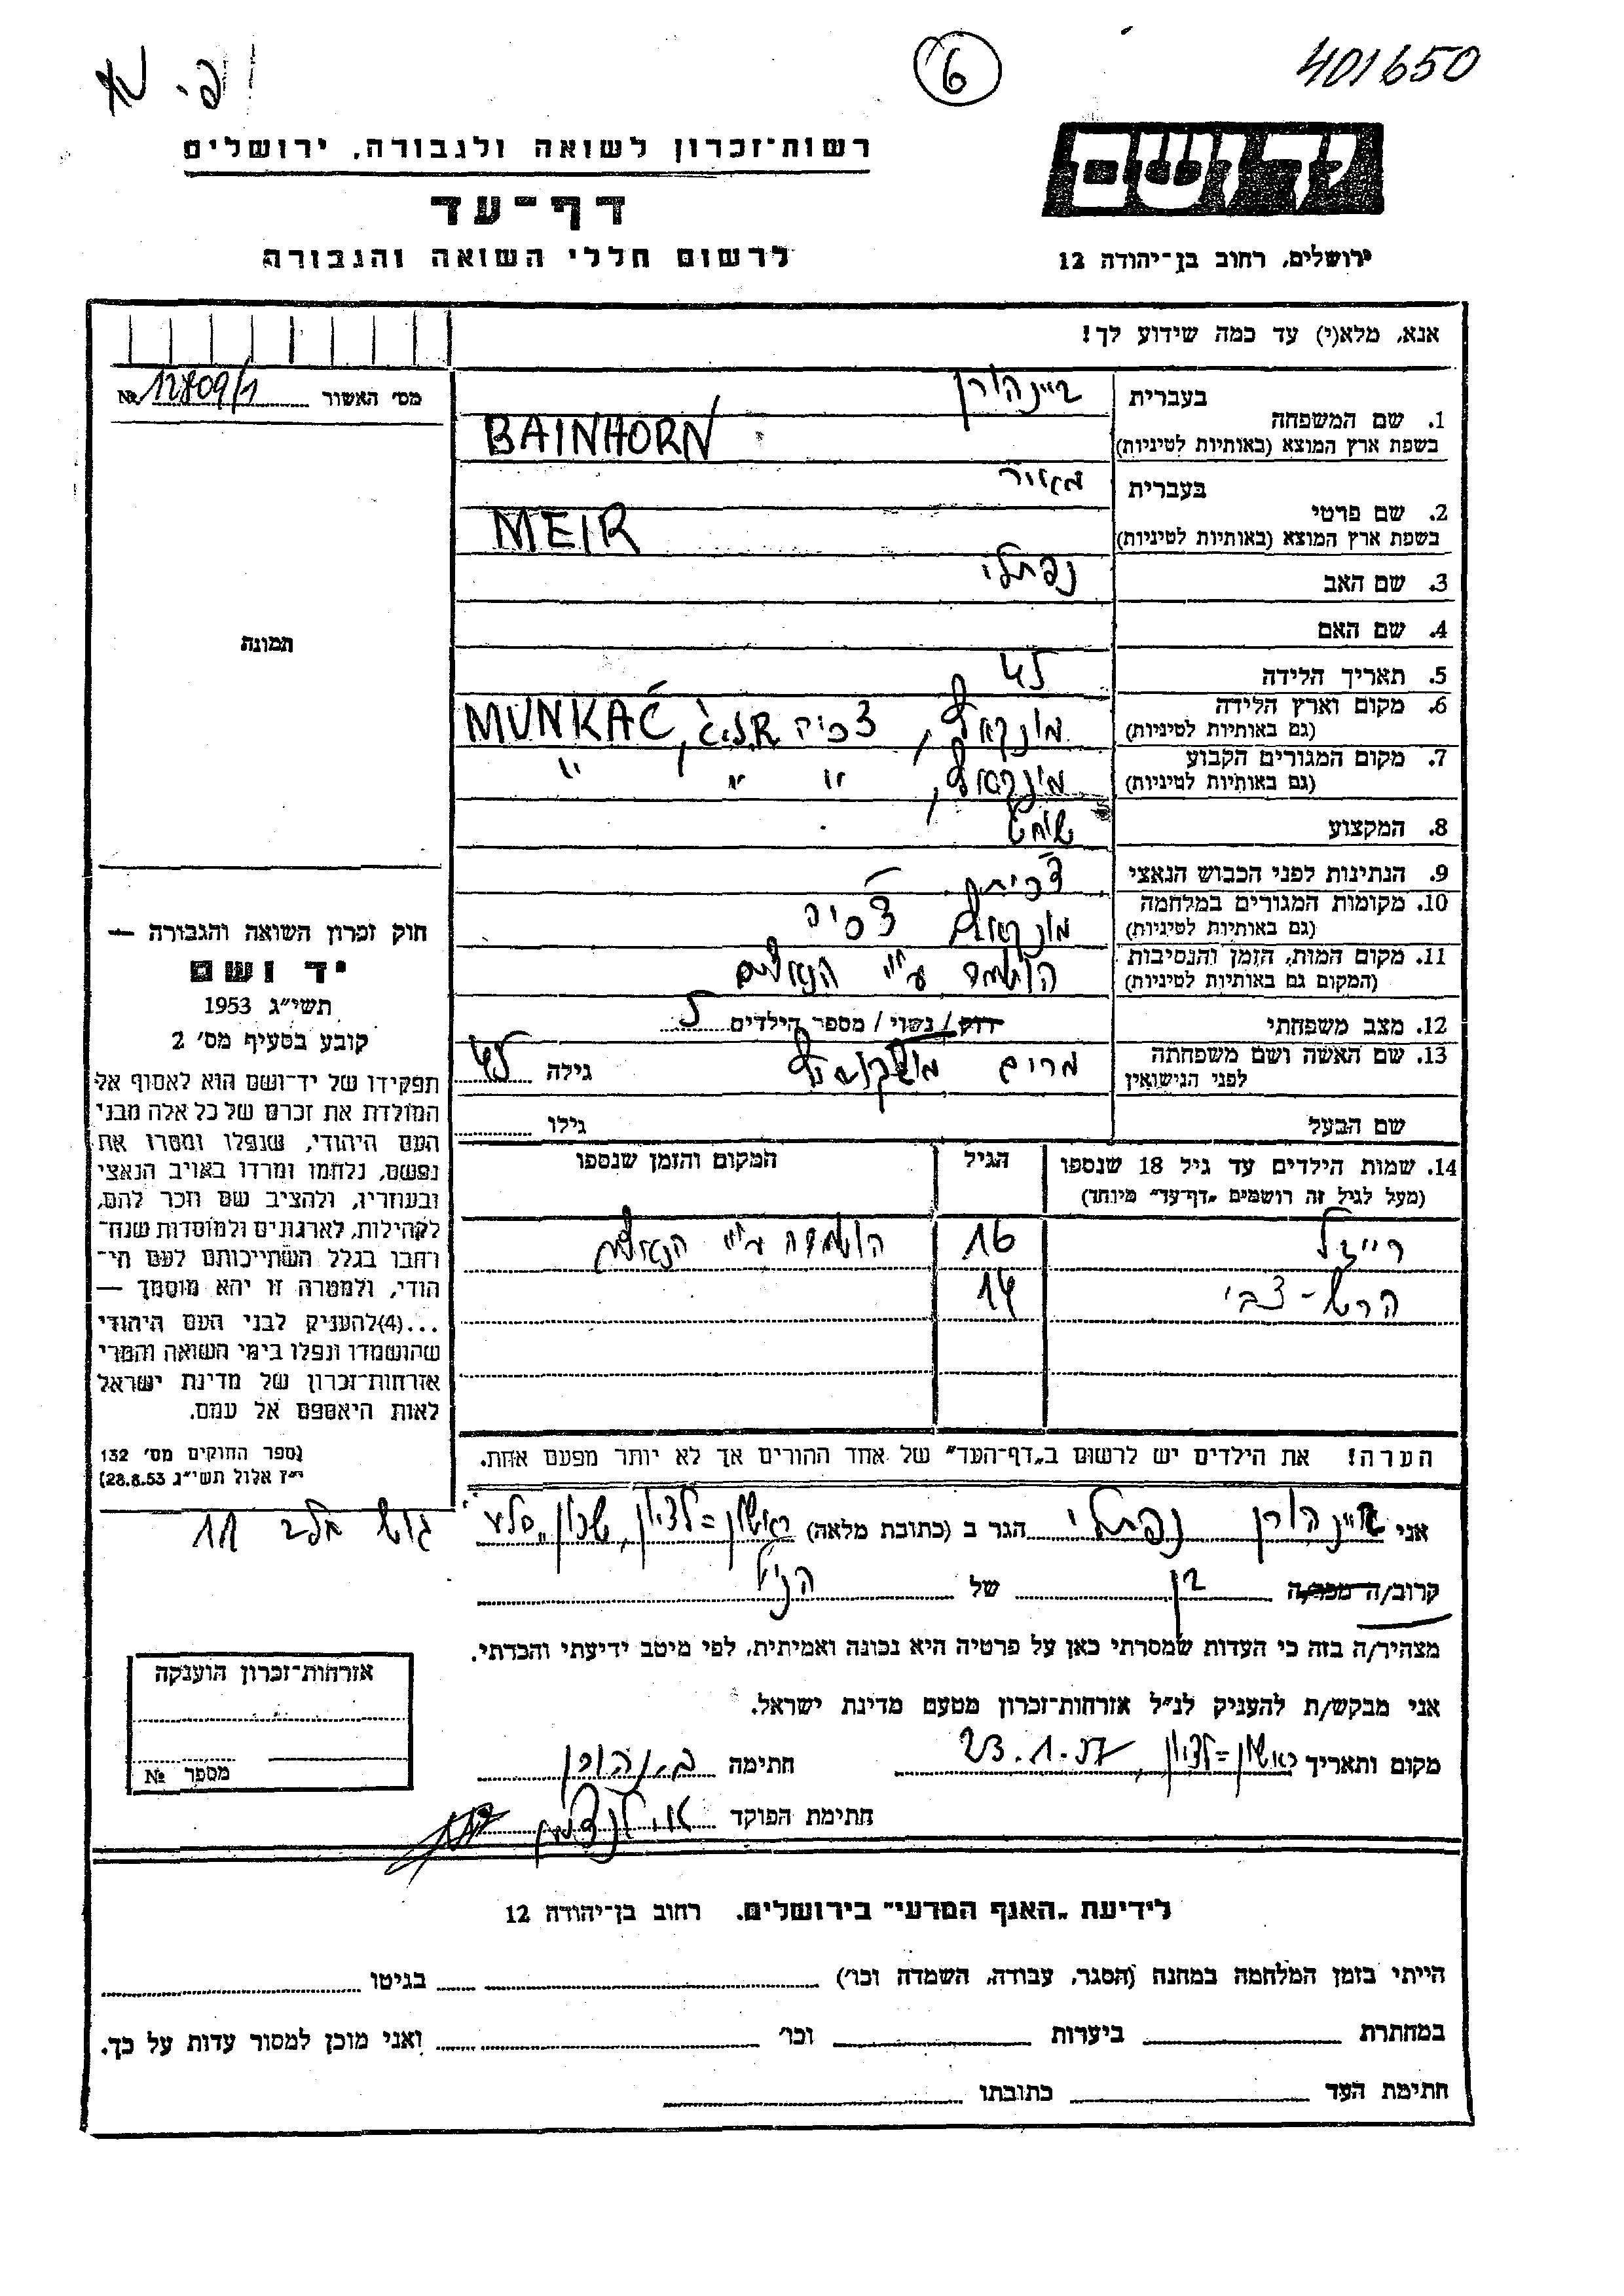 401650
6
רשות־זכרון לשואה ולגבורה, ירושלים
דף־עד
לרשום חללי השואה והגבורה
ירושלים, רחוב בן־יהודה 12
אנא, מלא(י) עד כמה שידוע לך!
מס׳ האשור № 12809/1
בעברית ביינהורן
1. שם המשפחה
בשפת ארץ המוצא (באותיות לטיניות) BAINHORN
בעברית מאיר
2. שם פרטי
בשפת ארץ המוצא (באותיות לטיניות) MEIR
3. שם האב נפתלי
4. שם האם
5. תאריך הלידה 45
6. מקום וארץ הלידה
(גם באותיות לטיניות) מונקאטש, צ׳כיה MUNKAČ,
7. מקום המגורים הקבוע
(גם באותיות לטיניות) מונקאטש, " " "
8. המקצוע שוחט
9. הנתינות לפני הכבוש הנאצי צ׳כית
10. מקומות המגורים במלחמה
(גם באותיות לטיניות) מונקאטש צ׳כיה
11. מקום המות, הזמן והנסיבות
(המקום גם באותיות לטיניות) הושמד ע״י הנאצים
12. מצב משפחתי רוק / נשוי / מספר הילדים 5
13. שם האשה ושם משפחתה
לפני הנישואין מרים גילה 45
שם הבעל גילו
14. שמות הילדים עד גיל 18 שנספו הגיל המקום והזמן שנספו
(מעל לגיל זה רושמים „דף־עד״ מיוחד)
רייזל 16 הושמדה ע״י הנאצים
הרש־צבי 14
הערה! את הילדים יש לרשום ב„דף־העד״ של אחד ההורים אך לא יותר מפעם אחת.
תמונה
חוק זכרון השואה והגבורה —
יד ושם
תשי״ג 1953
קובע בסעיף מס׳ 2
תפקידו של יד־ושם הוא לאסוף אל
המולדת את זכרם של כל אלה מבני
העם היהודי, שנפלו ומסרו את
נפשם, נלחמו ומרדו באויב הנאצי
ובעוזריו, ולהציב שם וזכר להם,
לקהילות, לארגונים ולמוסדות שנח־
רחבו בגלל השתייכותם לעם הי־
הודי, ולמטרה זו יהא מוסמך —
...(4)להעניק לבני העם היהודי
שהושמדו ונפלו בימי השואה והמרי
אזרחות־זכרון של מדינת ישראל
לאות היאספם אל עמם.
(ספר החוקים מס׳ 132
י״ז אלול תשי״ג 28.8.53)
אני ביינהורן נפתלי הגר ב (כתובת מלאה) ראשון=לציון, שכון „סלע״ גוש חלב 11
קרוב/ה מכר/ה בן של הנ״ל
מצהיר/ה בזה כי העדות שמסרתי כאן על פרטיה היא נכונה ואמיתית, לפי מיטב ידיעתי והכרתי.
אני מבקש/ת להעניק לנ״ל אזרחות־זכרון מטעם מדינת ישראל.
מקום ותאריך ראשון=לציון, 23.1.57 חתימה ביינהורן
חתימת הפוקד
אזרחות־זכרון הוענקה
מספר №
לידיעת „האגף המדעי״ בירושלים. רחוב בן־יהודה 12
הייתי בזמן המלחמה במחנה (הסגר, עבודה, השמדה וכו׳) בגיטו
במחתרת ביערות וכו׳ ואני מוכן למסור עדות על כך.
חתימת העד כתובתו